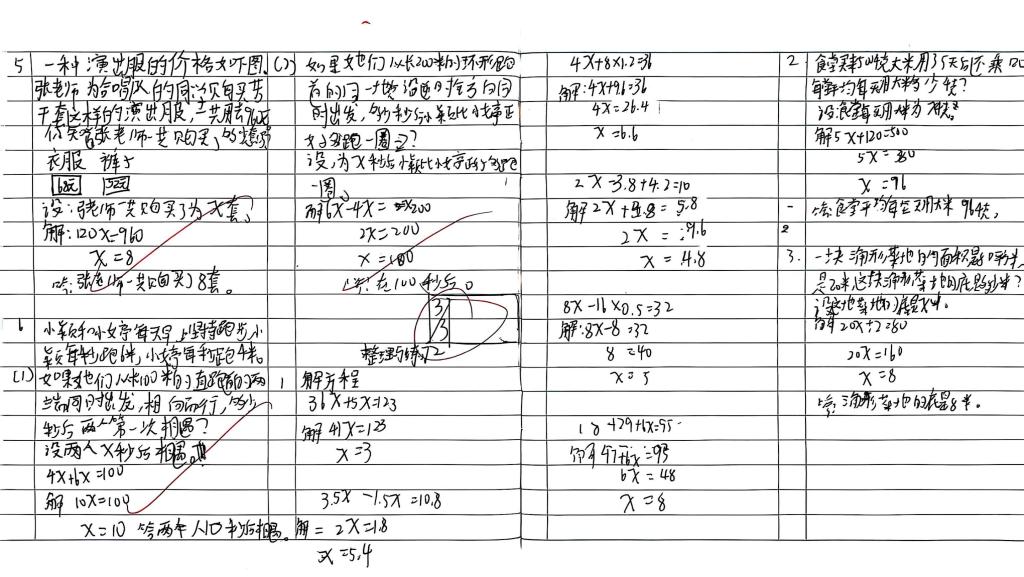 5 一种演出服的价格如下图。
张老师为合唱队的同学购买若
干套这样的演出服,一共用去960元
你知道张老师一共购买了多少套吗?
衣服 裤子
68元 52元
设:张老师一共购买了为x套。
解:120x=960
x=8
答:张老师一共购买了8套。
6 小颖和小婷每天早上坚持跑步,小
颖每秒跑6米,小婷每秒跑4米。
(1) 如果她们从长100米的直跑道的两
端同时出发,相向而行,多少
秒后两人第一次相遇?
设两人x秒后相遇。
4x+6x=100
解 10x=100
x=10 答两个人10秒后相遇。
(2) 如果她们从长200米的环形跑
道的同一地点沿
时出发,多少秒后小颖比小婷正
好多跑一圈?
设,为x秒后小颖比小婷正好多跑
一圈。
解6x-4x=200
2x=200
x=100
答:在100秒后。
整理与练习2
1 解方程
36x+5x=123
解 41x=123
x=3
3.5x-1.5x=10.8
解= 2x=1.8
x=5.4
4x+8×1.2=36
解:4x+9.6=36
4x=26.4
x=6.6
2x-3.8+4.2=10
解 2x+3.8=5.8
2x=9.6
x=4.8
8x-16×0.5=32
解:8x-8=32
8=40
x=5
18+29+6x=95
解 47+6x=95
6x=48
x=8
2 食堂
设食堂每天用大米为x千克。
解5x+120=500
5x=380
x=96
答:食堂平均每天用大米96千克,
3. 一块三角形菜地的面积是
是20米这块三角形菜地的底是多少米?
设菜地的底是x米。
解 20x÷2=80
20x=160
x=8
答:三角形菜地的底是8米。